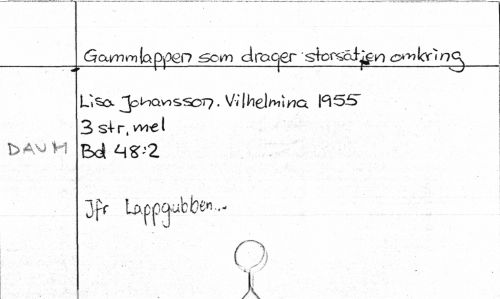 Gammlappen som drager storsätjen omkring
Lisa Johansson. Vilhelmina 1955
3 str, mel
DAUM Bd 48:2
Jfr Lappgubben...